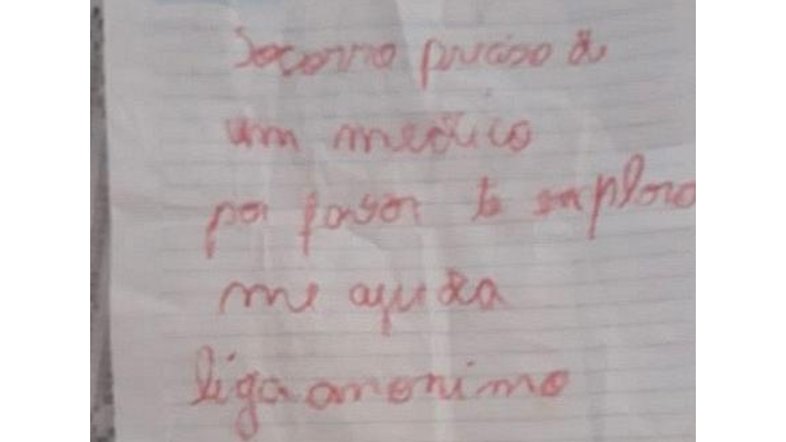 Socorro preciso de
um medico
por favor te imploro
me ajuda
liga anonimo